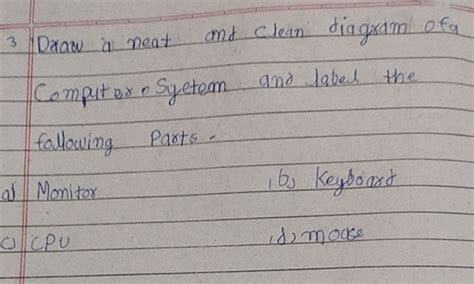 3 Draw a neat and clean diagram of a
Computer System and label the
following Parts-
a) Monitor b) Keyboard
c) CPU d) mouse